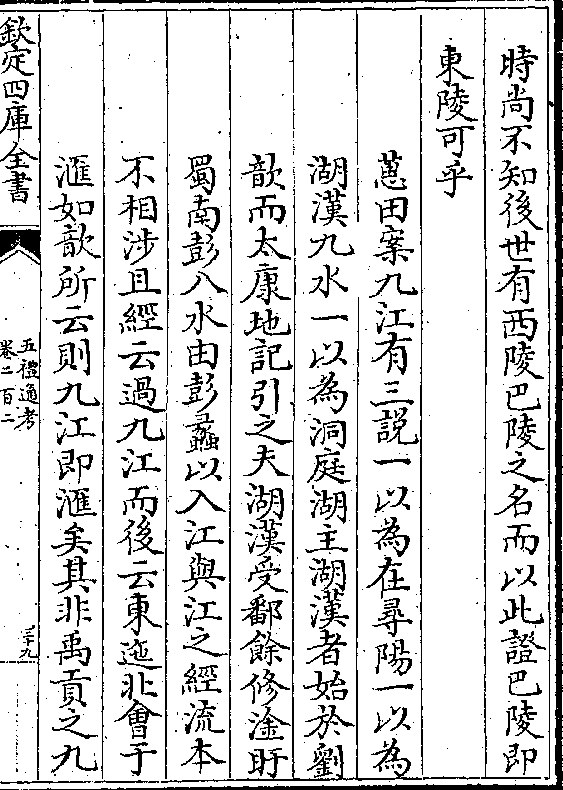 時尚不知後世有西陵巴陵之名而以此證巴陵即
東陵可乎
蕙田案九江有三説一以為在尋陽一以為
湖漢九水一以為洞庭湖主湖漢者始於劉
歆而太康地記引之夫湖漢受鄱餘修淦盱
蜀南彭八水由彭蠡以入江與江之經流本
不相涉且經云過九江而後云東迤北會于
滙如歆所云則九江即滙矣其非禹貢之九
欽定四庫全書
五禮通考
卷二百二
三十九